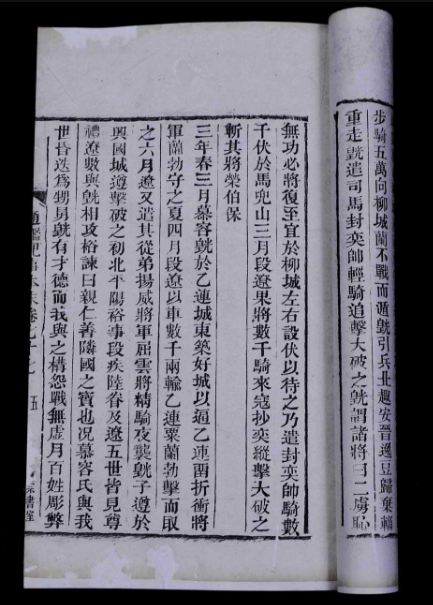 步騎五萬向柳城蘭不戰而遁皝引兵北趣安晉逸豆歸棄輜
重走皝遣司馬封奕帥輕騎追擊大破之皝謂諸將曰二虜恥
無功必將復至宜於柳城左右設伏以待之乃遣封奕帥騎數
千伏於馬兜山三月段遼果將數千騎來寇抄奕縱擊大破之
斬其將榮伯保
三年春三月慕容皝於乙連城東築好城以逼乙連留折衝將
軍蘭勃守之夏四月段遼以車數千兩輸乙連粟蘭勃擊而取
之六月遼又遣其從弟揚威將軍屈雲將精騎夜襲皝子遵於
興國城遵擊破之初北平陽裕事段疾陸眷及遼五世皆見尊
禮遼數與皝相攻裕諫曰親仁善隣國之寶也况慕容氏與我
世昏迭為甥舅皝有才德而我與之構怨戰無虚月百姓彫弊
通鑑紀事本末卷 五
書堂